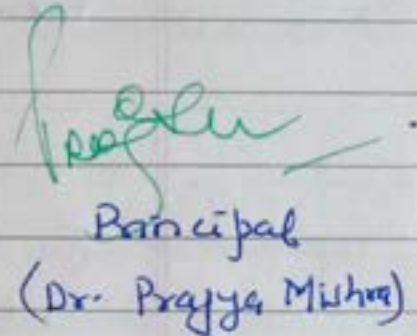 Principal
(Dr. Prajya Mishra)